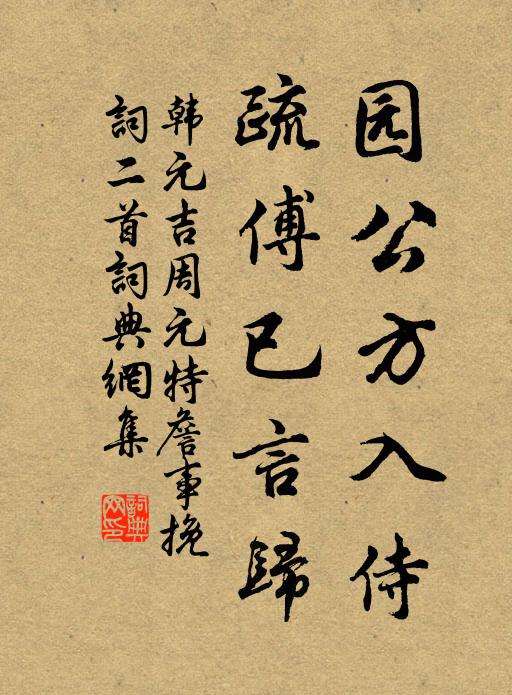 园公方入侍
疏傅已言歸
韩元吉周元特詹事挽
詞二首詞典網集
詞典
网印